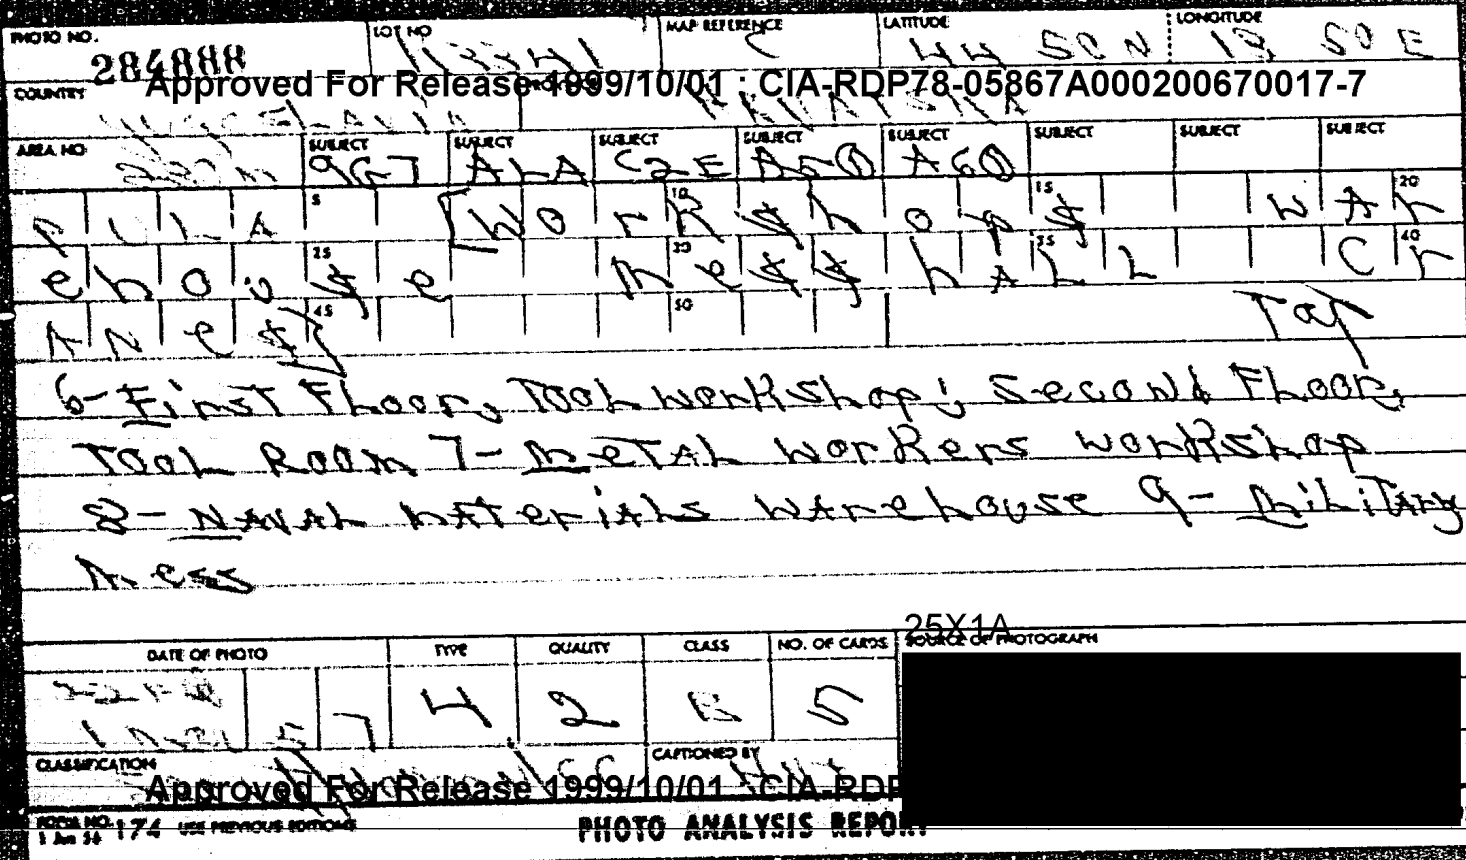 PHOTO NO. LOT NO MAP REFERENCE LATITUDE LONGITUDE
284888 C 44 50 N 13 50 E
Approved For Release 1999/10/01 : CIA-RDP78-05867A000200670017-7
COUNTRY
AREA NO SUBJECT SUBJECT SUBJECT SUBJECT SUBJECT SUBJECT SUBJECT SUBJECT
9G7 ALA C2E A50 A60
5 10 15 20
PULA [WorKShopS WAr
25 30 35 40
ehouSe MeSS hALL Cr
45 50
ANeS] Top
6- First Floor, Tool workshop; Second Floor,
Tool Room 7- Metal workers workshop
8- NAVAL MATeriALs WArehouse 9- MiLiTAry
Mess
25X1A
DATE OF PHOTO TYPE QUALITY CLASS NO. OF CARDS SOURCE OF PHOTOGRAPH
57 4 2 B 5
CLASSIFICATION CAPTIONED BY
Approved For Release 1999/10/01 : CIA-RDP
FORM NO. 174 USE PREVIOUS EDITIONS
1 Jun 54
PHOTO ANALYSIS REPORT